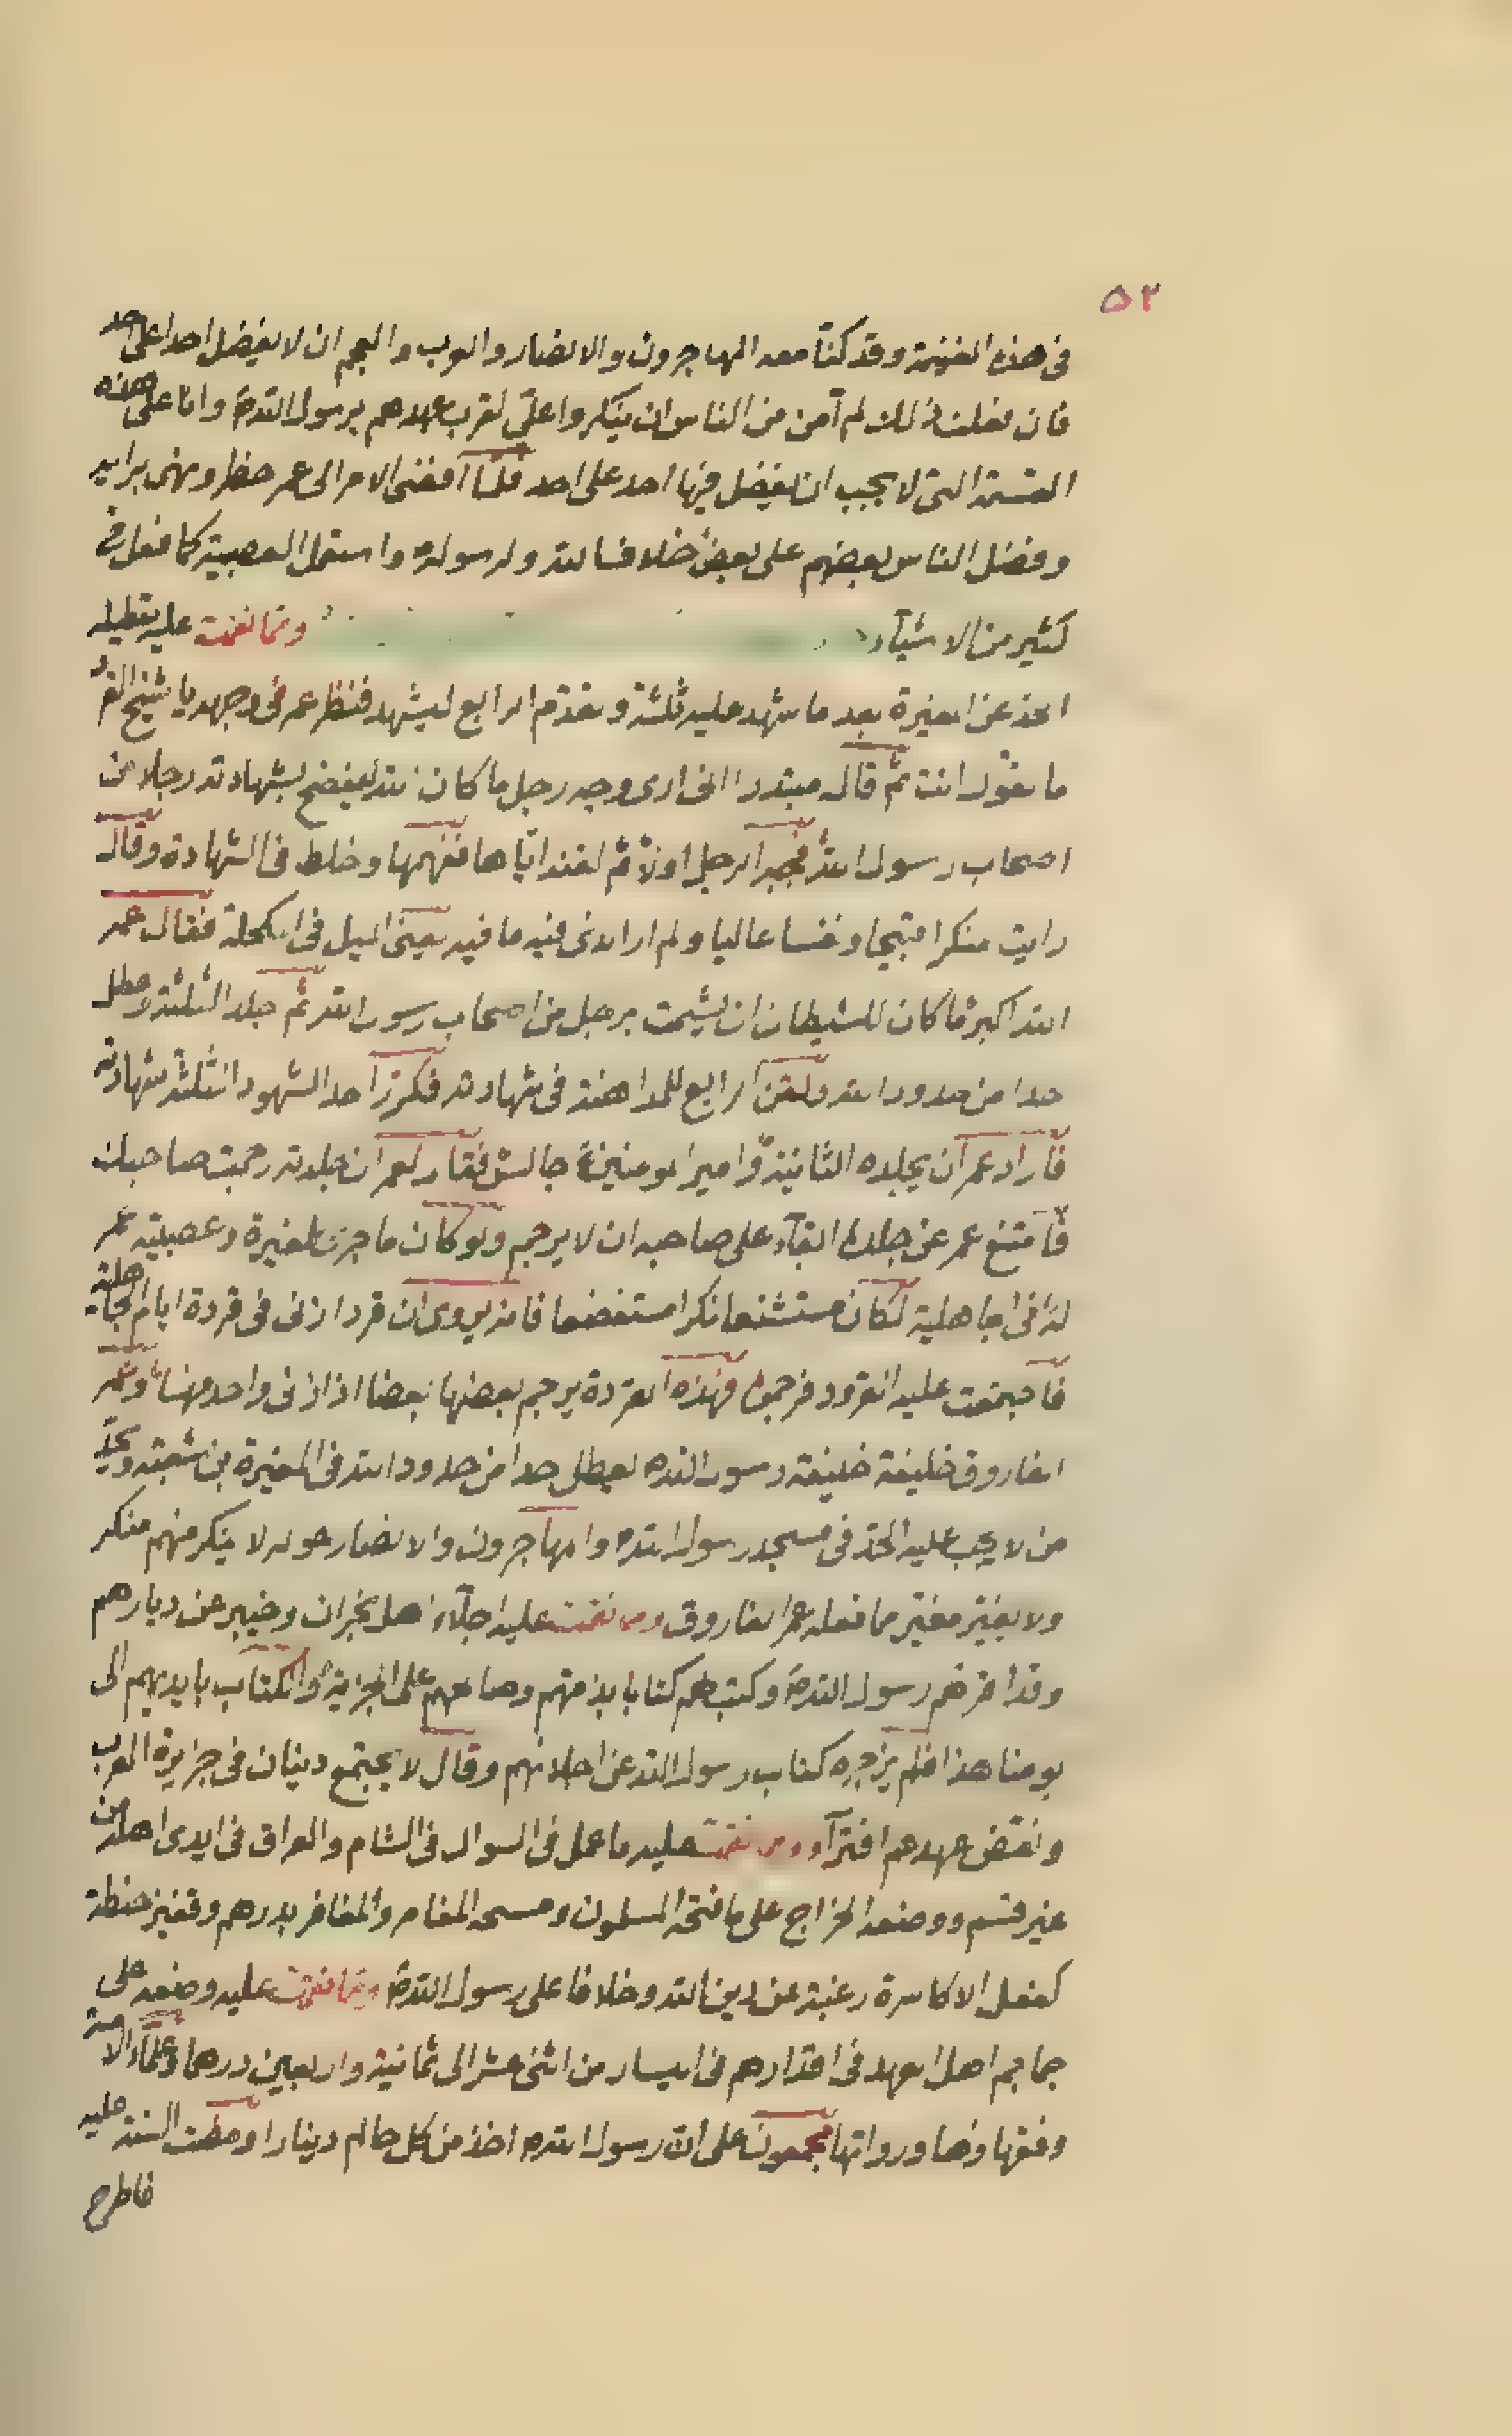 ٥٢
في هذه الغنيمة وقد كنّا معه المهاجرون والانصار والعرب والعجم ان لا يفضل احدا على احد
فان فعلت ذلك لم آمن من الناس ان ينكروا علىّ لقرب عهدهم برسول الله ص وانا على هذه
القسمة التى لا يجب ان يفضل فيها احد على احد فلمّا افضى الامر الى عمر حظر ونهى برايه
وفضل الناس بعضهم على بعض خلافا لله ولرسوله واستعمل العصبية كما فعل في
كثير من الاشيآء وممّا نقمت عليه تعطيله
الحد عن المغيرة بعد ما شهد عليه ثلثة وتقدّم الرابع ليشهد فنظر عمر في وجهه يا شيخ
ما تقول انت ثم قال مبتدرا انى ارى وجه رجل ما كان الله ليفضح بشهادته رجلا من
اصحاب رسول الله الرجل اولا ثم لقنه ايّاها ففهمها وخلط في الشهادة وقال
رايت منكرا قبيحا ونفسا عاليا ولم ار الذى فيه ما فيه يعنى الميل في المكحلة فقال عمر
الله اكبر ما كان للشيطان ان يشمت برجل من اصحاب رسول الله ثم جلد الثلثة وعطل
حدا من حدود الله ولقن الرابع للمداهنة في شهادته فكرّر احد الشهود الثلثة شهادته
فاراد عمر ان يجلده الثانية وامير المومنين ع جالس فقال لعمر ان جلدته رجمت صاحبك
فامتنع عمر عن جلده ابقآء على صاحبه ان لا يرجم ولو كان ما جرى للمغيرة وعصبية عمر
له في الجاهلية لكان مستشنعا نكرا مستفضعا فانه يروى ان قردا زنى في قردة ايام الجاهلية
فاجتمعت عليه القرود فرجموه فهذه القردة يرجم بعضها بعضا اذا زنى واحد منها وعمر
الفاروق خليفة خليفة رسول الله ص يعطل حدا من حدود الله في المغيرة بن شعبة ويحدّ
من لا يجب عليه الحدّ في مسجد رسول الله ص والمهاجرون والانصار حوله لا ينكر منهم منكر
ولا يغيّر مغيّر ما فعله عمر الفاروق ومما نقمت عليه اجلآء اهل نجران وخيبر عن ديارهم
وقد اقرهم رسول الله ص وكتب لهم كتابا بذمتهم وصالحهم على الجزية والكتاب بايديهم الى
يومنا هذا فلم يزجره كتاب رسول الله عن اجلائهم وقال لا يجتمع دينان في جزيرة العرب
ونقض عهدهم افترآء ومما نقمت عليه ما عمل في السواد في الشام والعراق في ايدى اهله من
غير قسم ووضعه الخراج على ما فتحه المسلمون ومسحه العامر والغامر بدرهم وقفيز حنطة
كفعل الاكاسرة رغبة عن دين الله وخلافا على رسول الله ص ومما نقمت عليه وضعه على
جماجم اهل العهد في اقدارهم في اليسار من اثنى عشر الى ثمانية واربعين درهما وعلمآء الامة
وفقهاؤها ورواتها مجمعون على انّ رسول الله ص اخذ من كل حالم دينارا ومضت السنة عليه
فاطرح